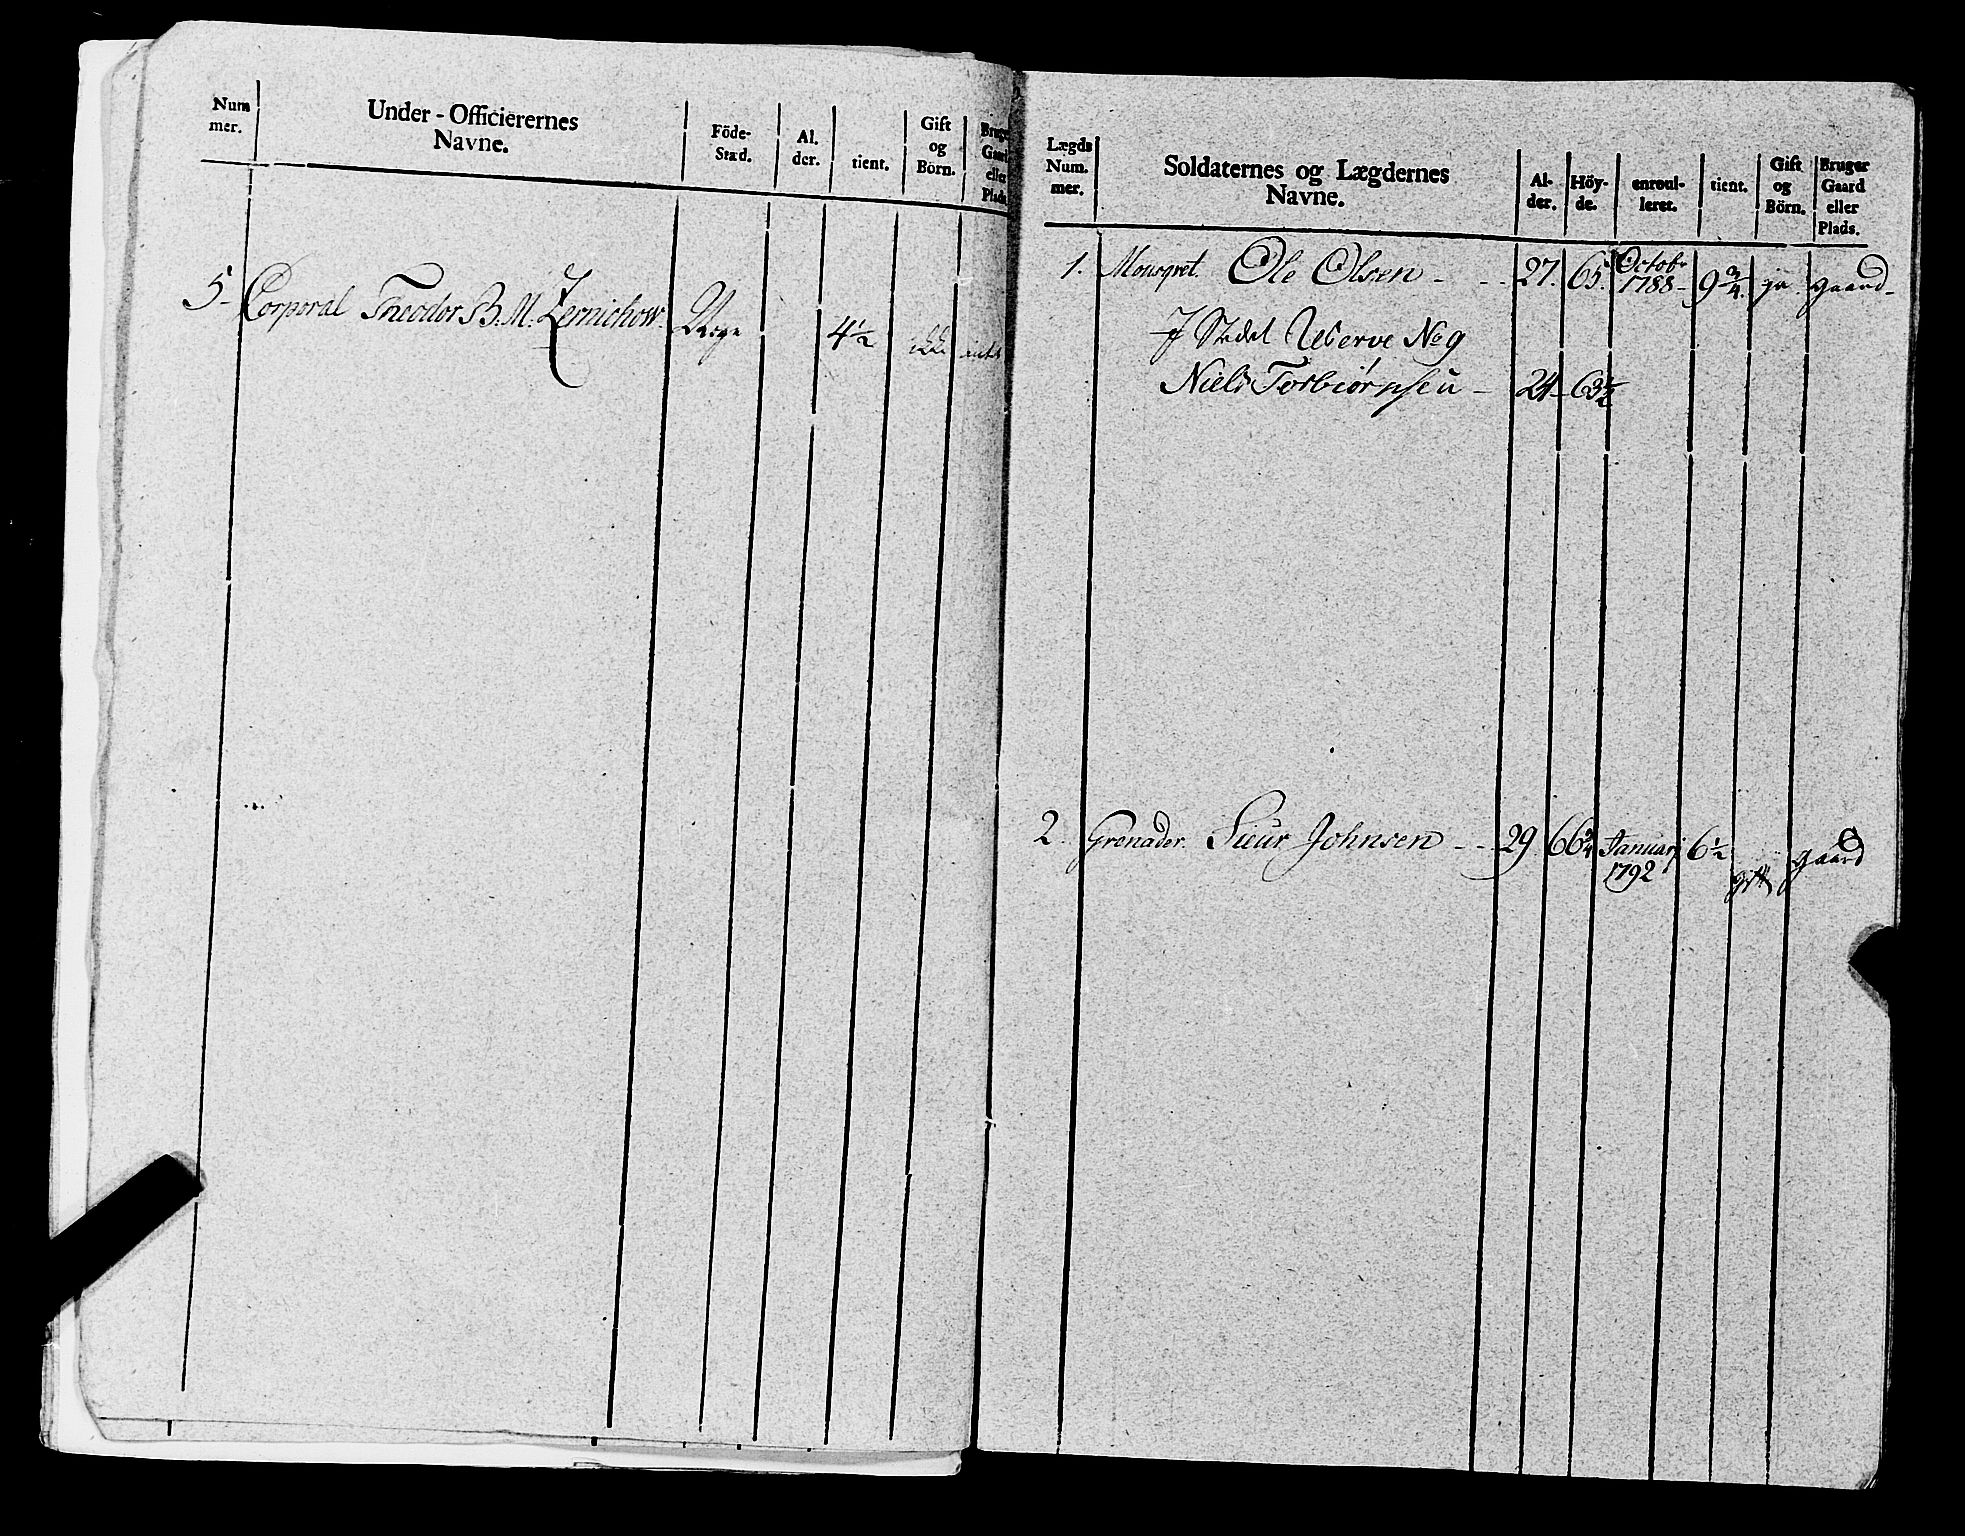 Num
mer.
Under - Officierernes
Navne.
Föde-
Stæd.
Al.
der.
tient.
Gift
og
Börn.
Bruger
Gaard
eller
Plads.
5 - Corporal Theodor B: M: Zernichow. 4 1/2 ikke
Lægds
Num.
mer.
Soldaternes og Lægdernes
Navne.
Al-
der.
Höy-
de.
enroul-
leret.
tient.
Gift
og
Börn.
Bruger
Gaard
eller
Plads.
1. Mousqvet. Ole Olsen - - - 27. 65. Octobr 1788 - 9 3/4. ja gaard -
I Stedet Reserve No 9
Niels Torbiørnsen - 24 - 63 1/2
2. Grenader. Siur Johnsen - - - 29 66 3/4 Januarj 1792 6 1/2 gift gaard